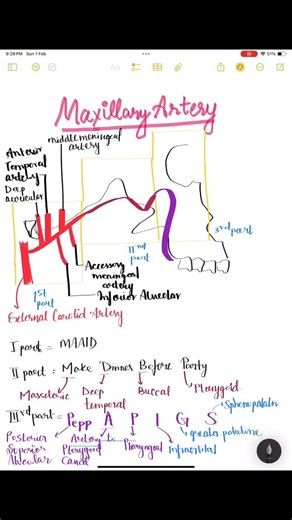 9:28 PM Sun 1 Feb
51%
Maxillary Artery
middle meningeal
artery
Anterior
Temporal
artery
Deep
auricular
3rd part
IInd
part
Accessory
meningeal
artery
Inferior Alveolar
1st
part
External Carotid Artery
I part = MAAID
II part = Make Dinner Before Party
Masseteric
Deep
temporal
Buccal
Pterygoid
IIIrd part = Pepp A P I G S
Sphenopalatine
greater palatine
Posterior
Superior
Alveolar
Artery to
Pterygoid
Canal
Pharyngeal
Infraorbital